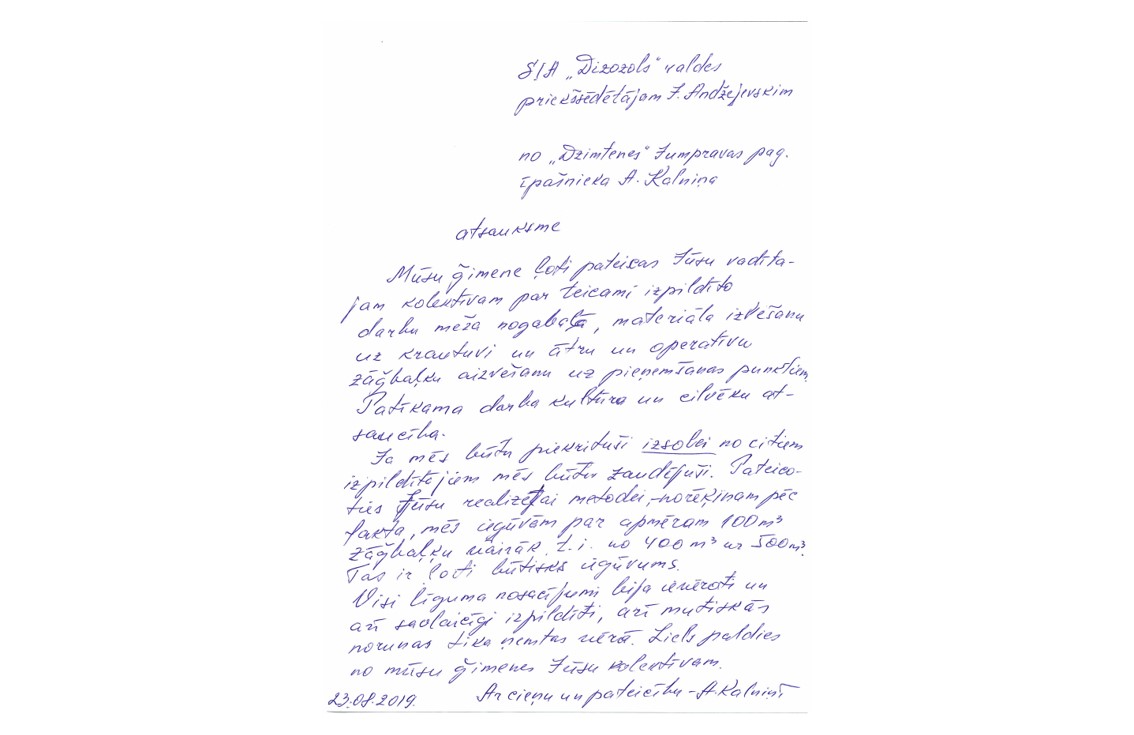 SIA „Dizozols" valdes
priekšsēdētājam J. Andžejevskim
no „Dzimtenes" Jumpravas pag.
īpašnieka A. Kalniņa
atsauksme
Mūsu ģimene ļoti pateicas Jūsu vadīta-
jam kolektīvam par teicami izpildīto
darbu meža nogabalā, materiāla izvešanu
uz krautuvi un ātru un operatīvu
zāģbaļķu aizvešanu uz pieņemšanas punktiem
Patīkama darba kultūra un cilvēku at-
saucība.
Ja mēs būtu piekrituši izsolei no citiem
izpildītājiem mēs būtu zaudējuši. Pateico-
ties Jūsu realizētai metodei, norēķinam pēc
fakta, mēs ieguvām par apmēram 100 m³
zāģbaļķu vairāk t.i. no 400 m³ uz 500 m³.
Tas ir ļoti būtisks ieguvums.
Visi līguma nosacījumi bija ievēroti un
arī savlaicīgi izpildīti, arī mutiskās
norunas tika ņemtas vērā. Liels paldies
no mūsu ģimenes Jūsu kolektīvam.
23.08.2019. Ar cieņu un pateicību - A. Kalniņš